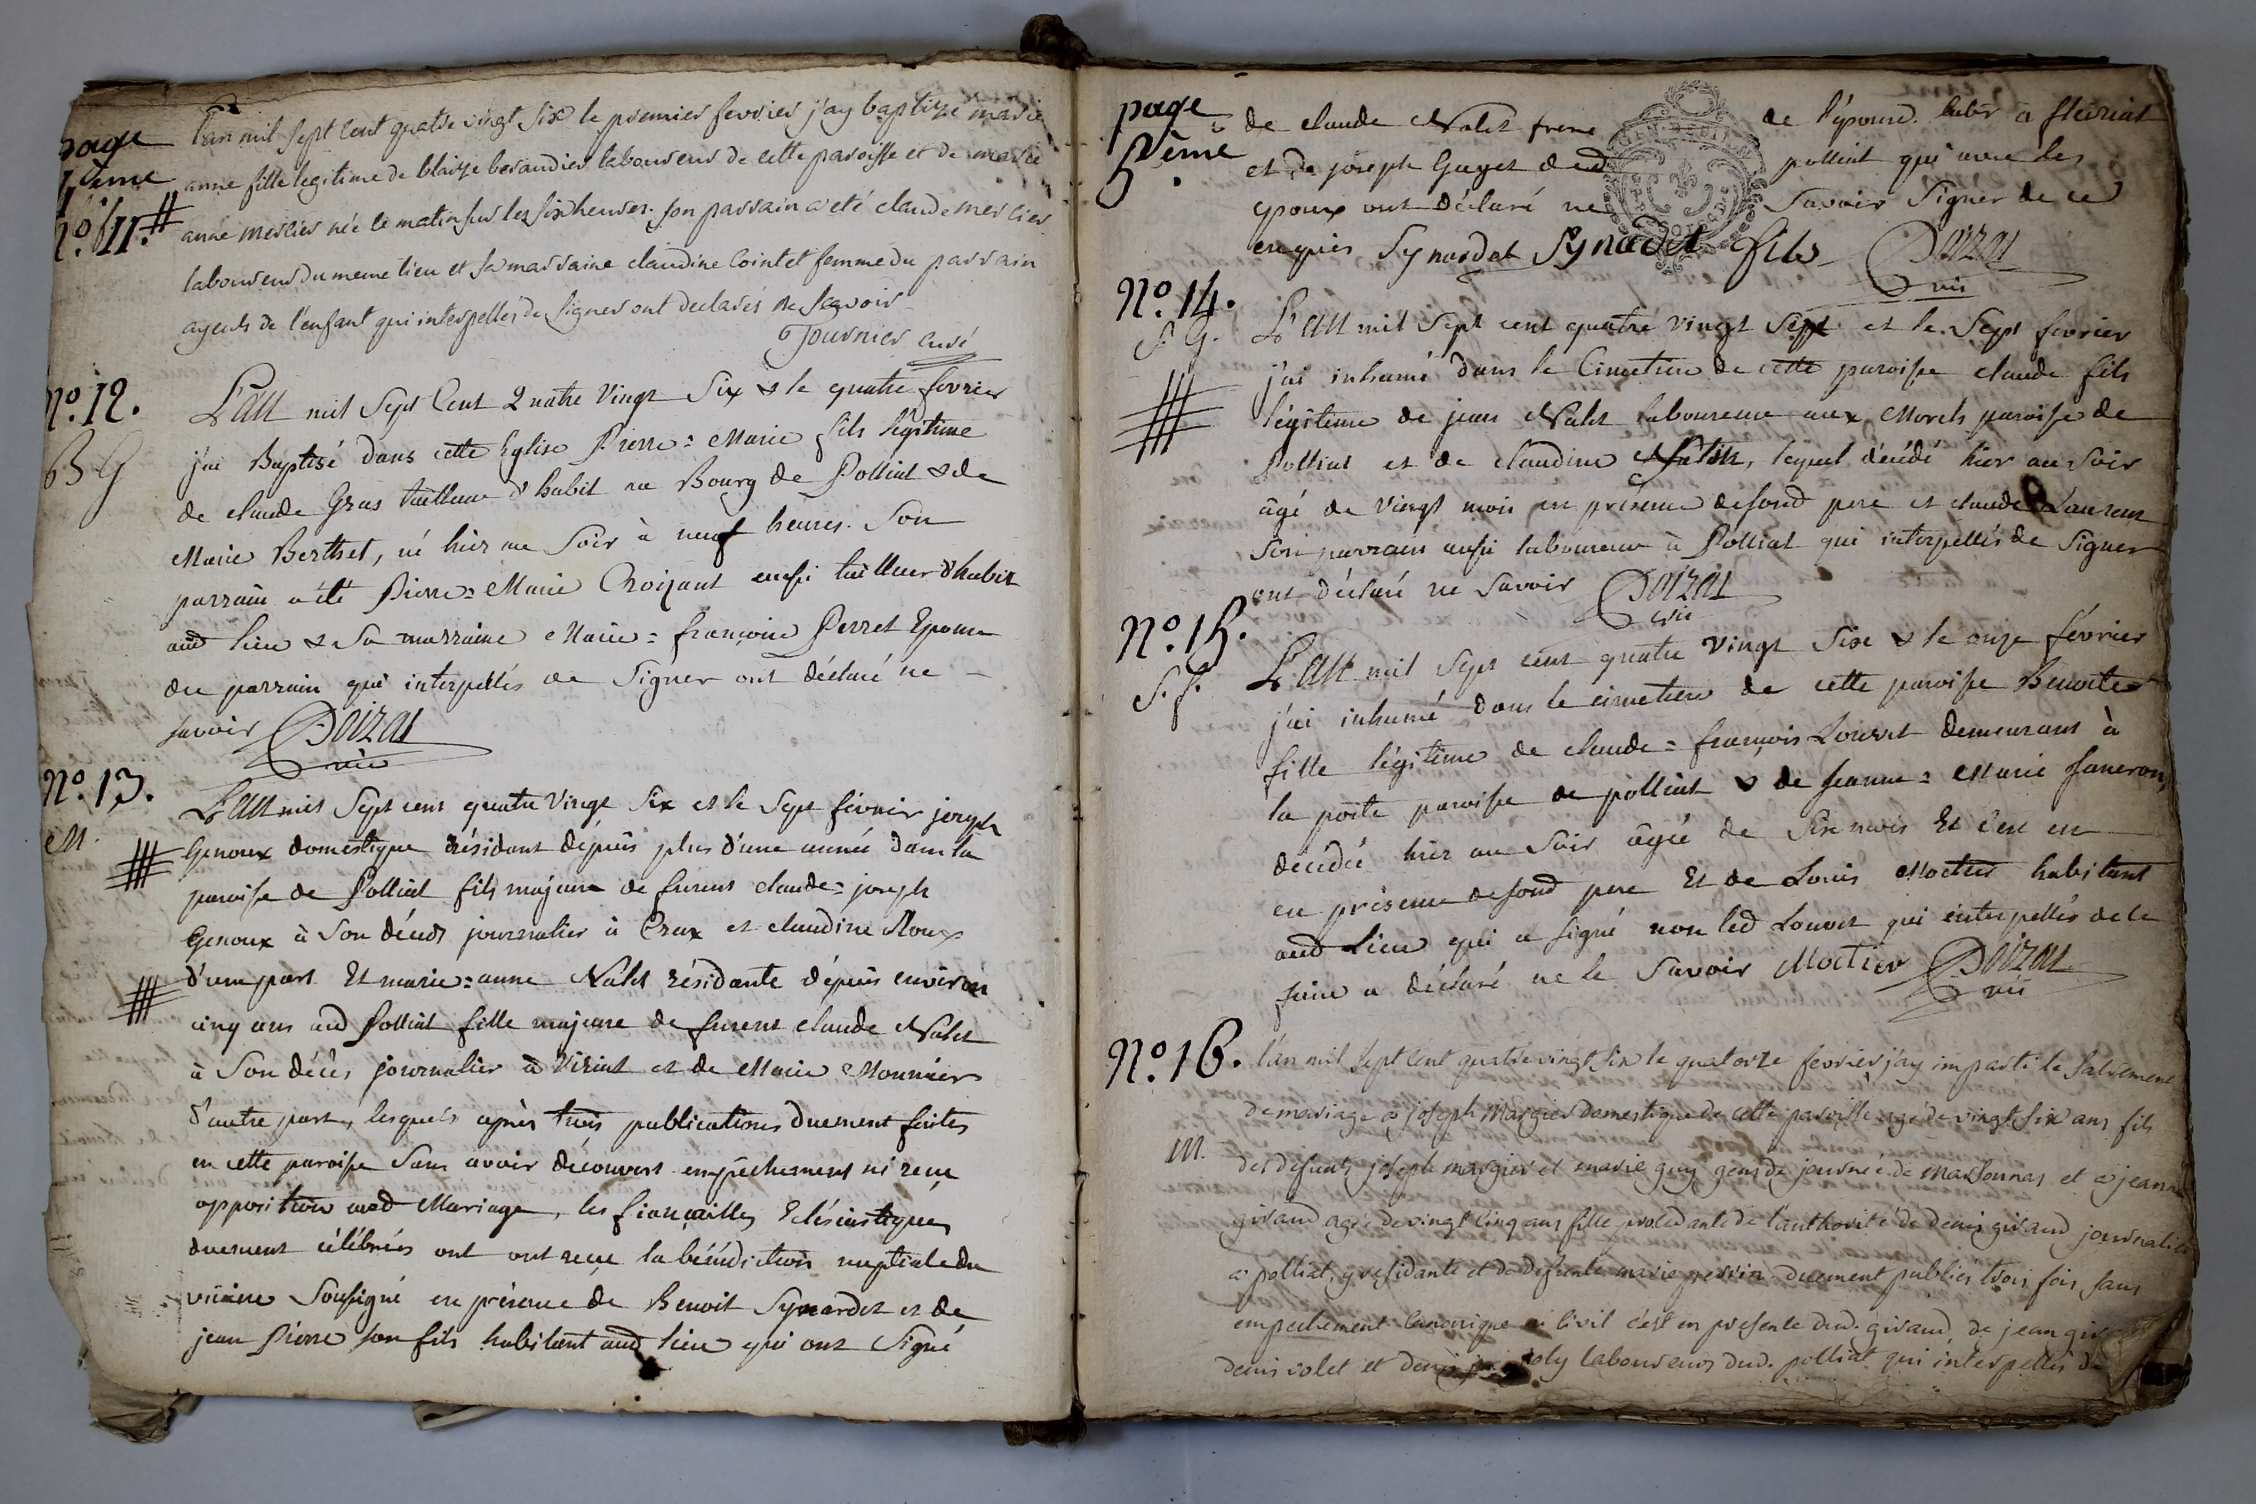 page
4ème
n.º 11.
L'an mil sept cent quatre vingt six le premier fevrier j'ay baptizé marie
anne fille legitime de blaize borandier laboureur de cette paroisse et de marie
anne mercier née le matin sur les six heures. son parrain a eté claude mercier
laboureur du meme lieu et sa marraine claudine Cointet femme du parrain
ayeuls de l'enfant qui interpellés de signer ont declarés ne sçavoir
Tournier curé
N.º 12.
B G
L'an mil Sept Cent Quatre Vingt Six & le quatre fevrier
j'ai Baptisé dans cette Eglise Pierre=Marie fils légitime
de claude Gras tailleur d'habit au Bourg de Polliat & de
Marie Berthet, né hier au Soir à neuf heures. Son
parrain a été Pierre=Marie Croizant aussi tailleur d'habit
aud lieu & Sa marraine Marie=françoise Perret Epouse
du parrain qui interpellés de Signer ont déclaré ne
savoir Doizat
vic
N.º 13.
M.
L'an mil Sept cent quatre Vingt Six et le Sept février joseph
Genoux domestique résidant dépuis plus d'une année dans la
paroisse de Polliat fils majeur de furent claude=joseph
Genoux à Son décès journalier à Cras et claudine Roux
d'une part Et marie=anne Nalet résidante dépuis environ
cinq ans aud Polliat fille majeure de furent claude Nalet
à Son décès journalier à Viriat et de Marie Monnier
d'autre part, lesquels après trois publications duement faites
en cette paroisse Sans avoir découvert empêchement ni reçu
opposition aud Mariage, les fiançailles Eclésiastiques
duement célébrées ont ont reçu la bénédiction nuptiale du
vicaire Soussigné en présence de Benoit Synardet et de
jean Pierre son fils habitant aud lieu qui ont Signé
page
5ème
de claude Nalet frere de l'épouse habt à fleuriat
et de joseph Guyet dud polliat qui avec les
époux ont déclaré ne Savoir Signer de ce
enquis Synardet Synadet fils Doizat
vic
N.º 14.
S. G.
L'an mil Sept cent quatre vingt Sept et le Sept fevrier
j'ai inhumé dans le Cimetiere de cette paroisse claude fils
légitime de jean Nalet laboureur aux Morels paroisse de
Polliat et de claudine, lequel décédé hier au Soir
âgé de vingt mois en présence desond pere et claude Laurent
Son parrain aussi laboureur à Polliat qui interpellés de Signer
ont déclaré ne Savoir Doizat
vic
N.º 15.
S. f.
L'an mil Sept cent quatre Vingt Six & le onze février
j'ai inhumé dans le cimetiere de cette paroisse Benoite
fille légitime de claude=françois Louvet demeurant à
la poste paroisse de polliat & de Jeanne=Marie faneron,
décédée hier au Soir âgée de Six mois Et c'est en
en présence desond pere Et de Louis Moctier habitant
aud Lieu qui a signé non led Louvet qui interpellés de le
faire a déclaré ne le Savoir Moctier Doizat
vic
N.º 16.
m.
l'an mil sept cent quatre vingt six le quatorze fevrier j'ay imparti le sacrement
de mariage a joseph Margier domestique de cette paroisse agé de vingt six ans fils
des defunts joseph margier et marie guy gens de journée de marsonnas et a jeanne
giraud agée de vingt cinq ans fille procedante de l'authorité de denis giraud journalier
a polliat, y residante et de defunte marie perrin duement publiés trois fois sans
empechement canonique ni civil c'est en presence dud. giraud, de jean giraud
denis volet et denis joly laboureurs dud. polliat qui interpellés de